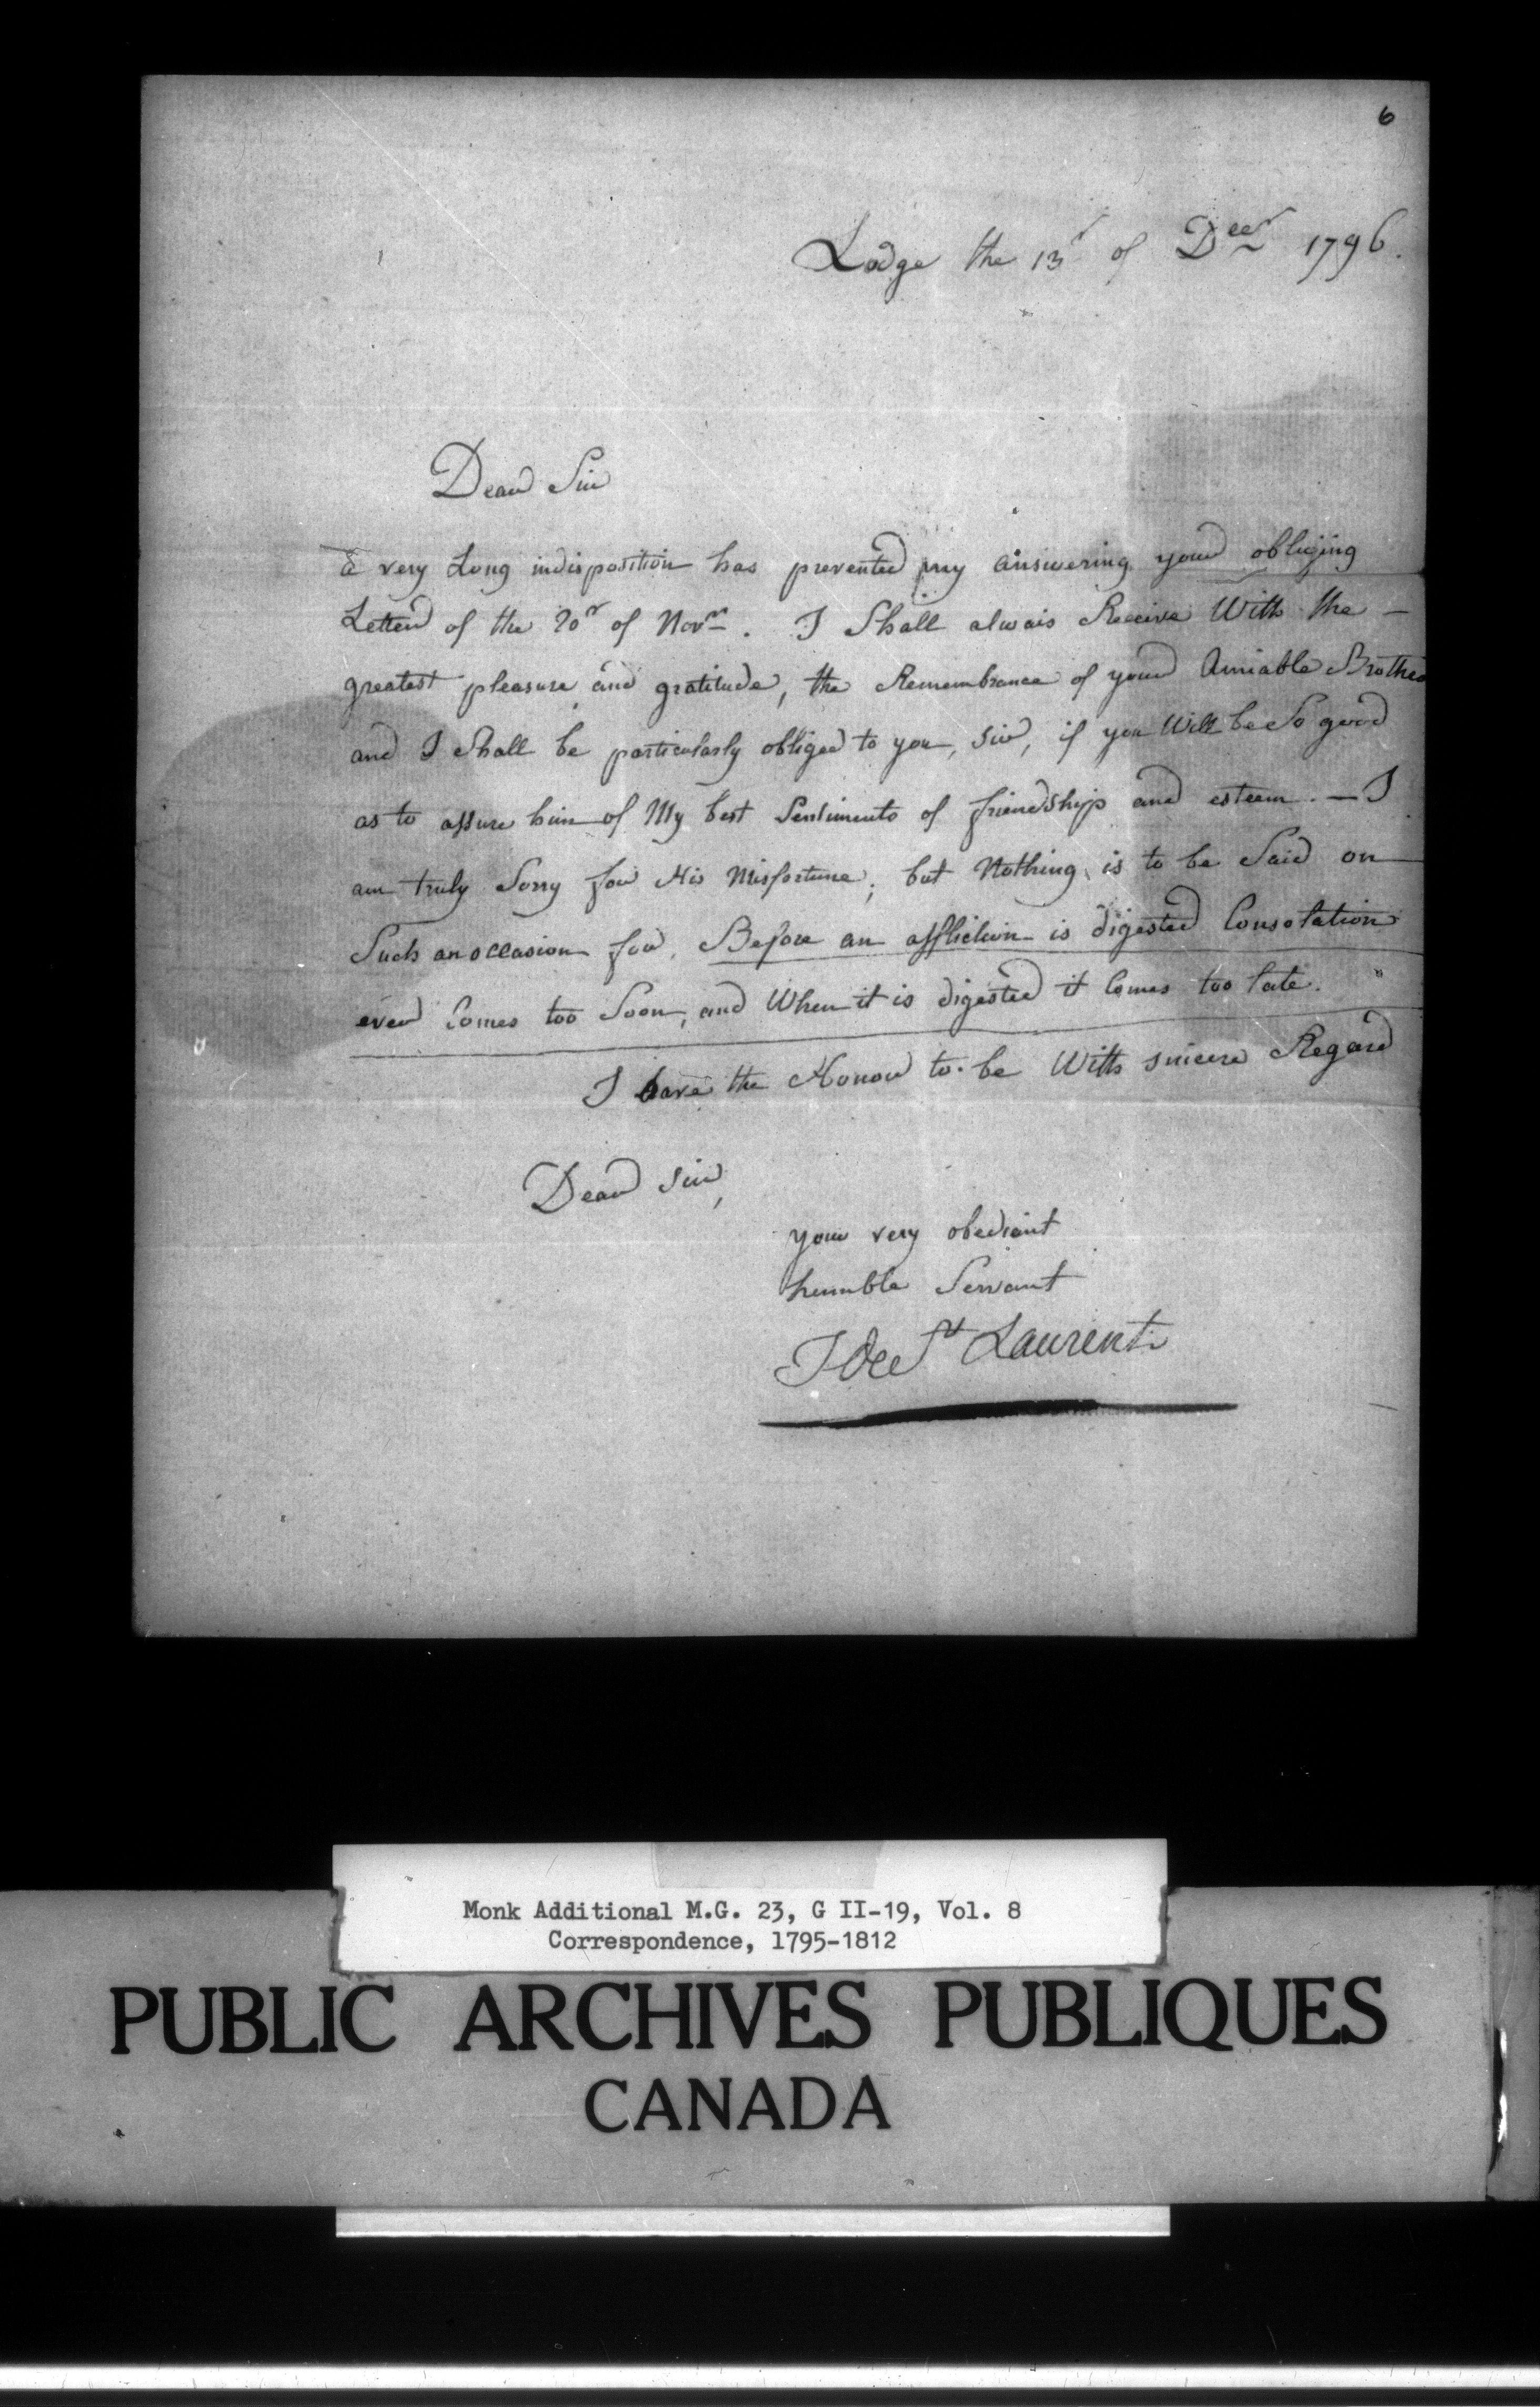 6
Lodge the 13r of Decr 1796.
Dear Sir
a very Long indisposition has prevented my answering your obliging
Letter of the 20r of Novr. I Shall alwais Receive With the —
greatest pleasure and gratitude, the Remembrance of your Amiable Brother
and I Shall be particularly obliged to you, Sir, if you Will be So good
as to assure him of My best Sentiments of friendship and esteem. — I
am truly Sorry for His Misfortune; but Nothing is to be Said on
Such an occasion for, Before an affliction is digested Consolation
ever Comes too Soon, and When it is digested it Comes too late.
I have the Honour to be With sincere Regard
Dear Sir,
your very obediant
humble Servant
J de St Laurent
Monk Additional M.G. 23, G II-19, Vol. 8
Correspondence, 1795-1812
PUBLIC ARCHIVES PUBLIQUES
CANADA